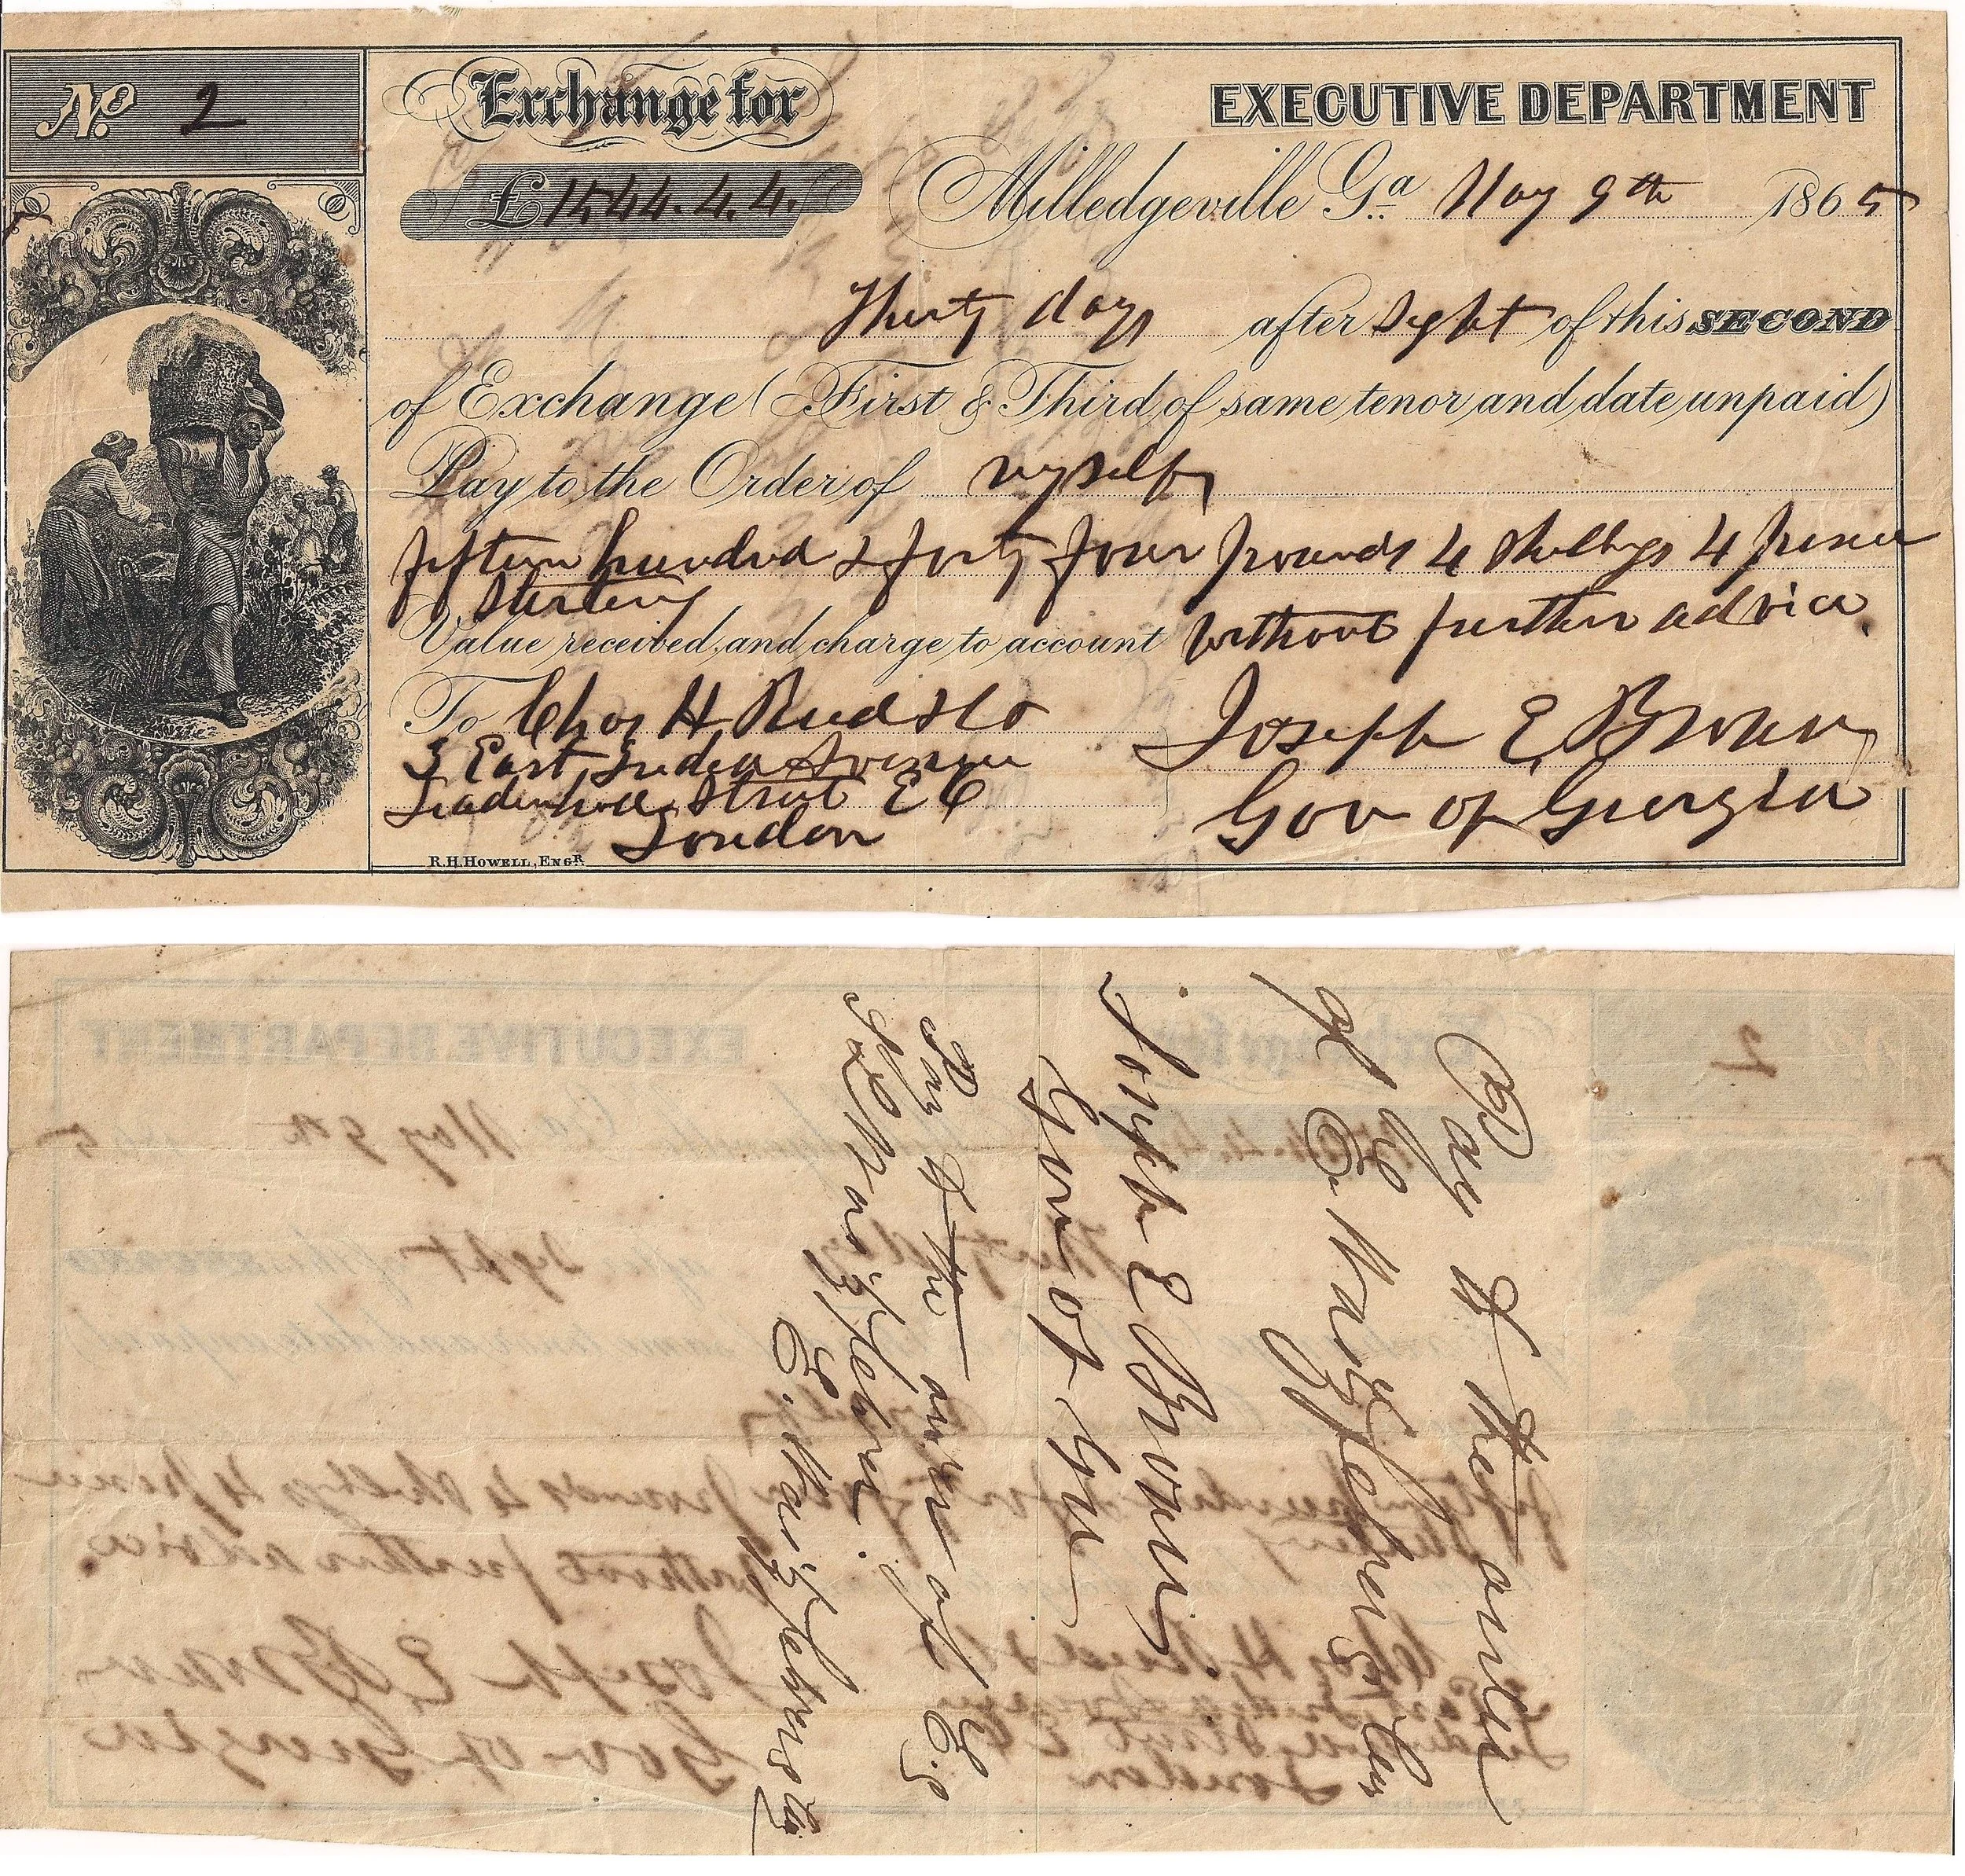 No. 2
Exchange for
EXECUTIVE DEPARTMENT
£1544.4.4.
Milledgeville Ga May 9th 1865
Thirty days after sight of this SECOND
of Exchange (First & Third of same tenor and date unpaid)
Pay to the Order of myself
fifteen hundred & forty four pounds 4 shillings 4 pence
Sterling
Value received, and charge to account without further advice.
To Chas H Reid & Co
3 East India Avenue
Leadenhall Street E C
London
Joseph E Brown
Gov of Georgia
R.H. HOWELL, ENGR.
Pay to the order
of E. Waitzfelder & Co
Joseph E Brown
Gov of Ga
Pay to the order of
Waitzfelder.
E. Waitzfelder & Co